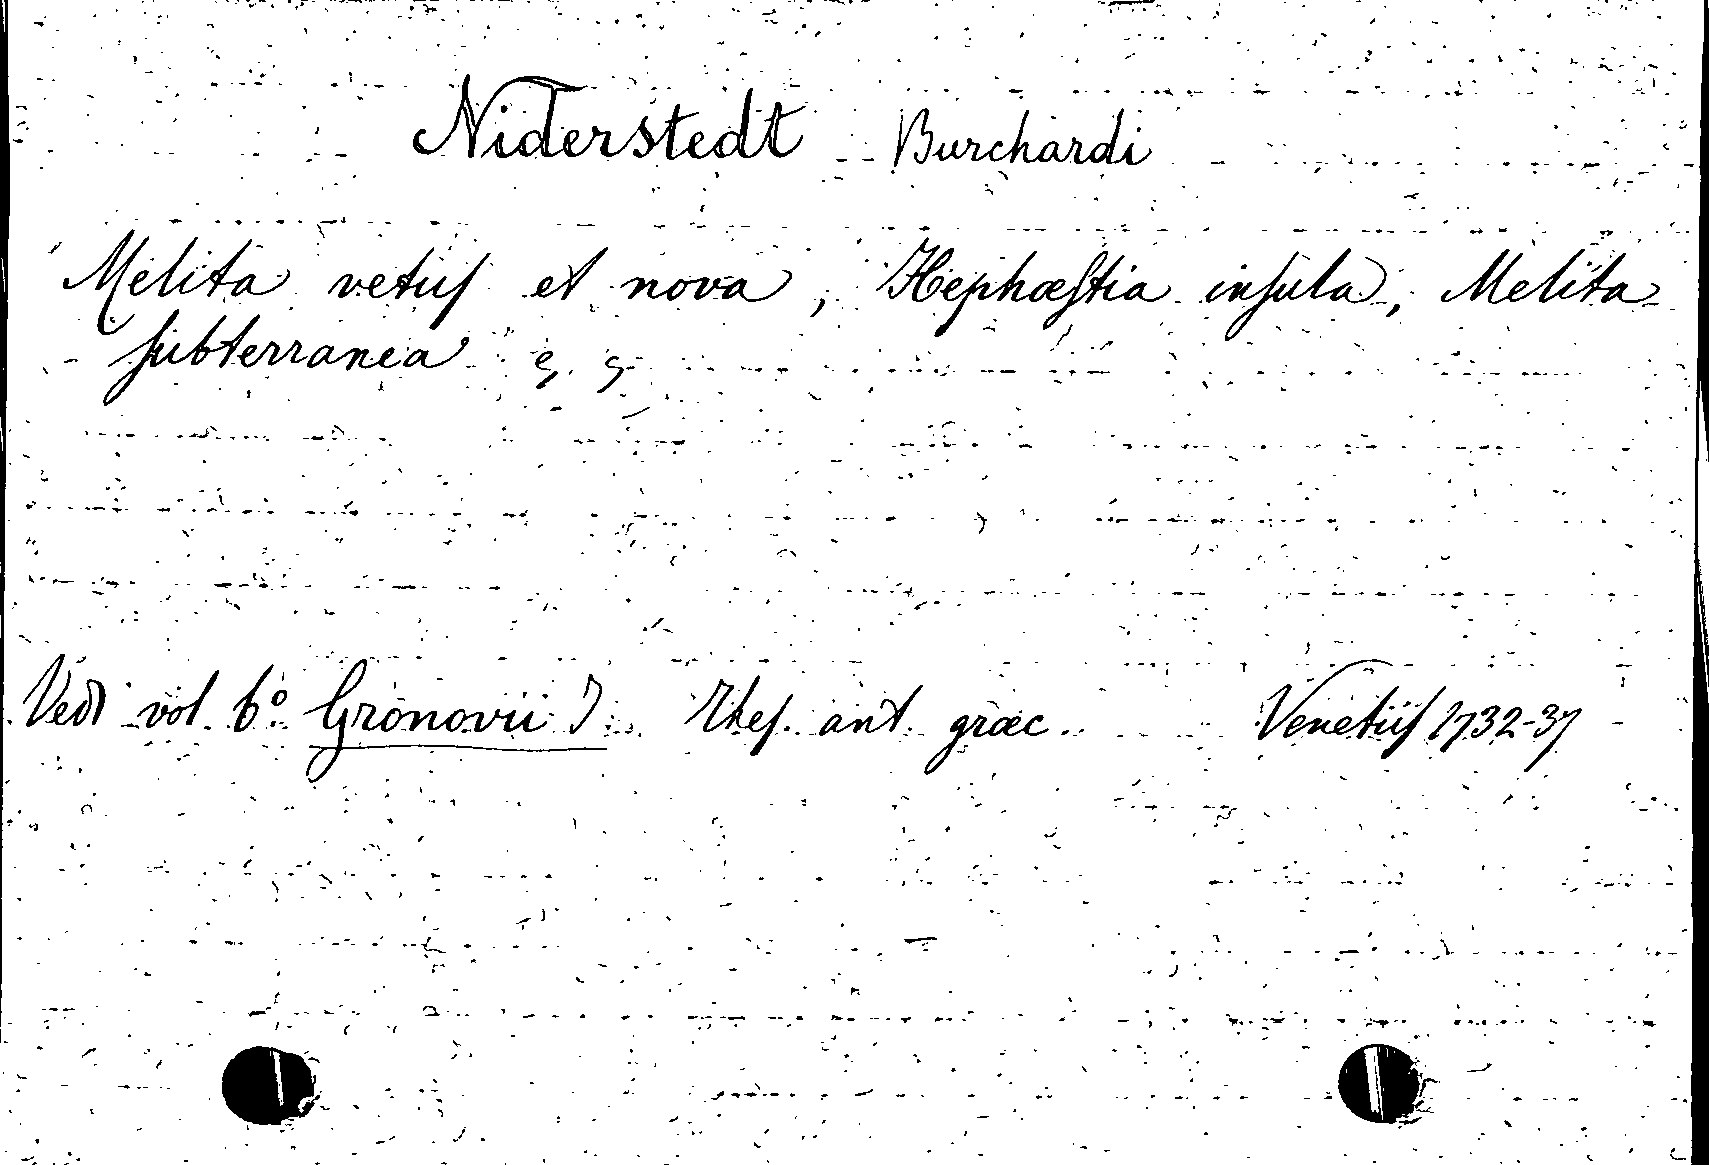 Niderstedt Burchardi
Melita vetus et nova, Hephæstia insula, Melita
subterranea
Vedi vol. 6º Gronovii J. Thes. ant. græc. Venetiis 1732-37